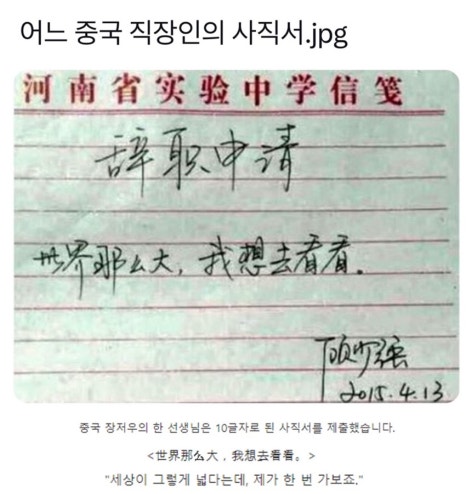 어느 중국 직장인의 사직서.jpg
河南省实验中学信笺
辞职申请
世界那么大，我想去看看。
顾少强
2015.4.13
중국 장저우의 한 선생님은 10글자로 된 사직서를 제출했습니다.
<世界那么大，我想去看看。>
"세상이 그렇게 넓다는데, 제가 한 번 가보죠."